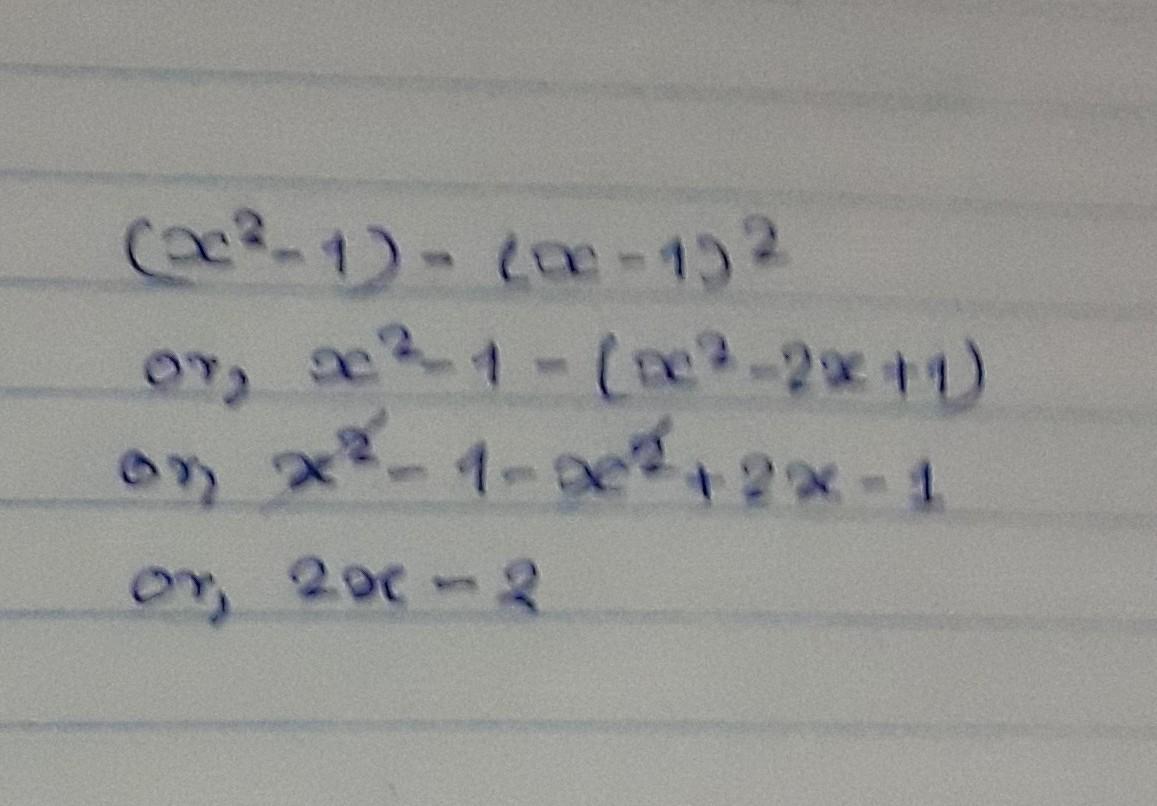 (x²-1) - (x-1)²
or, x²-1-(x²-2x+1)
or, x²-1-x²+2x-1
or, 2x-2